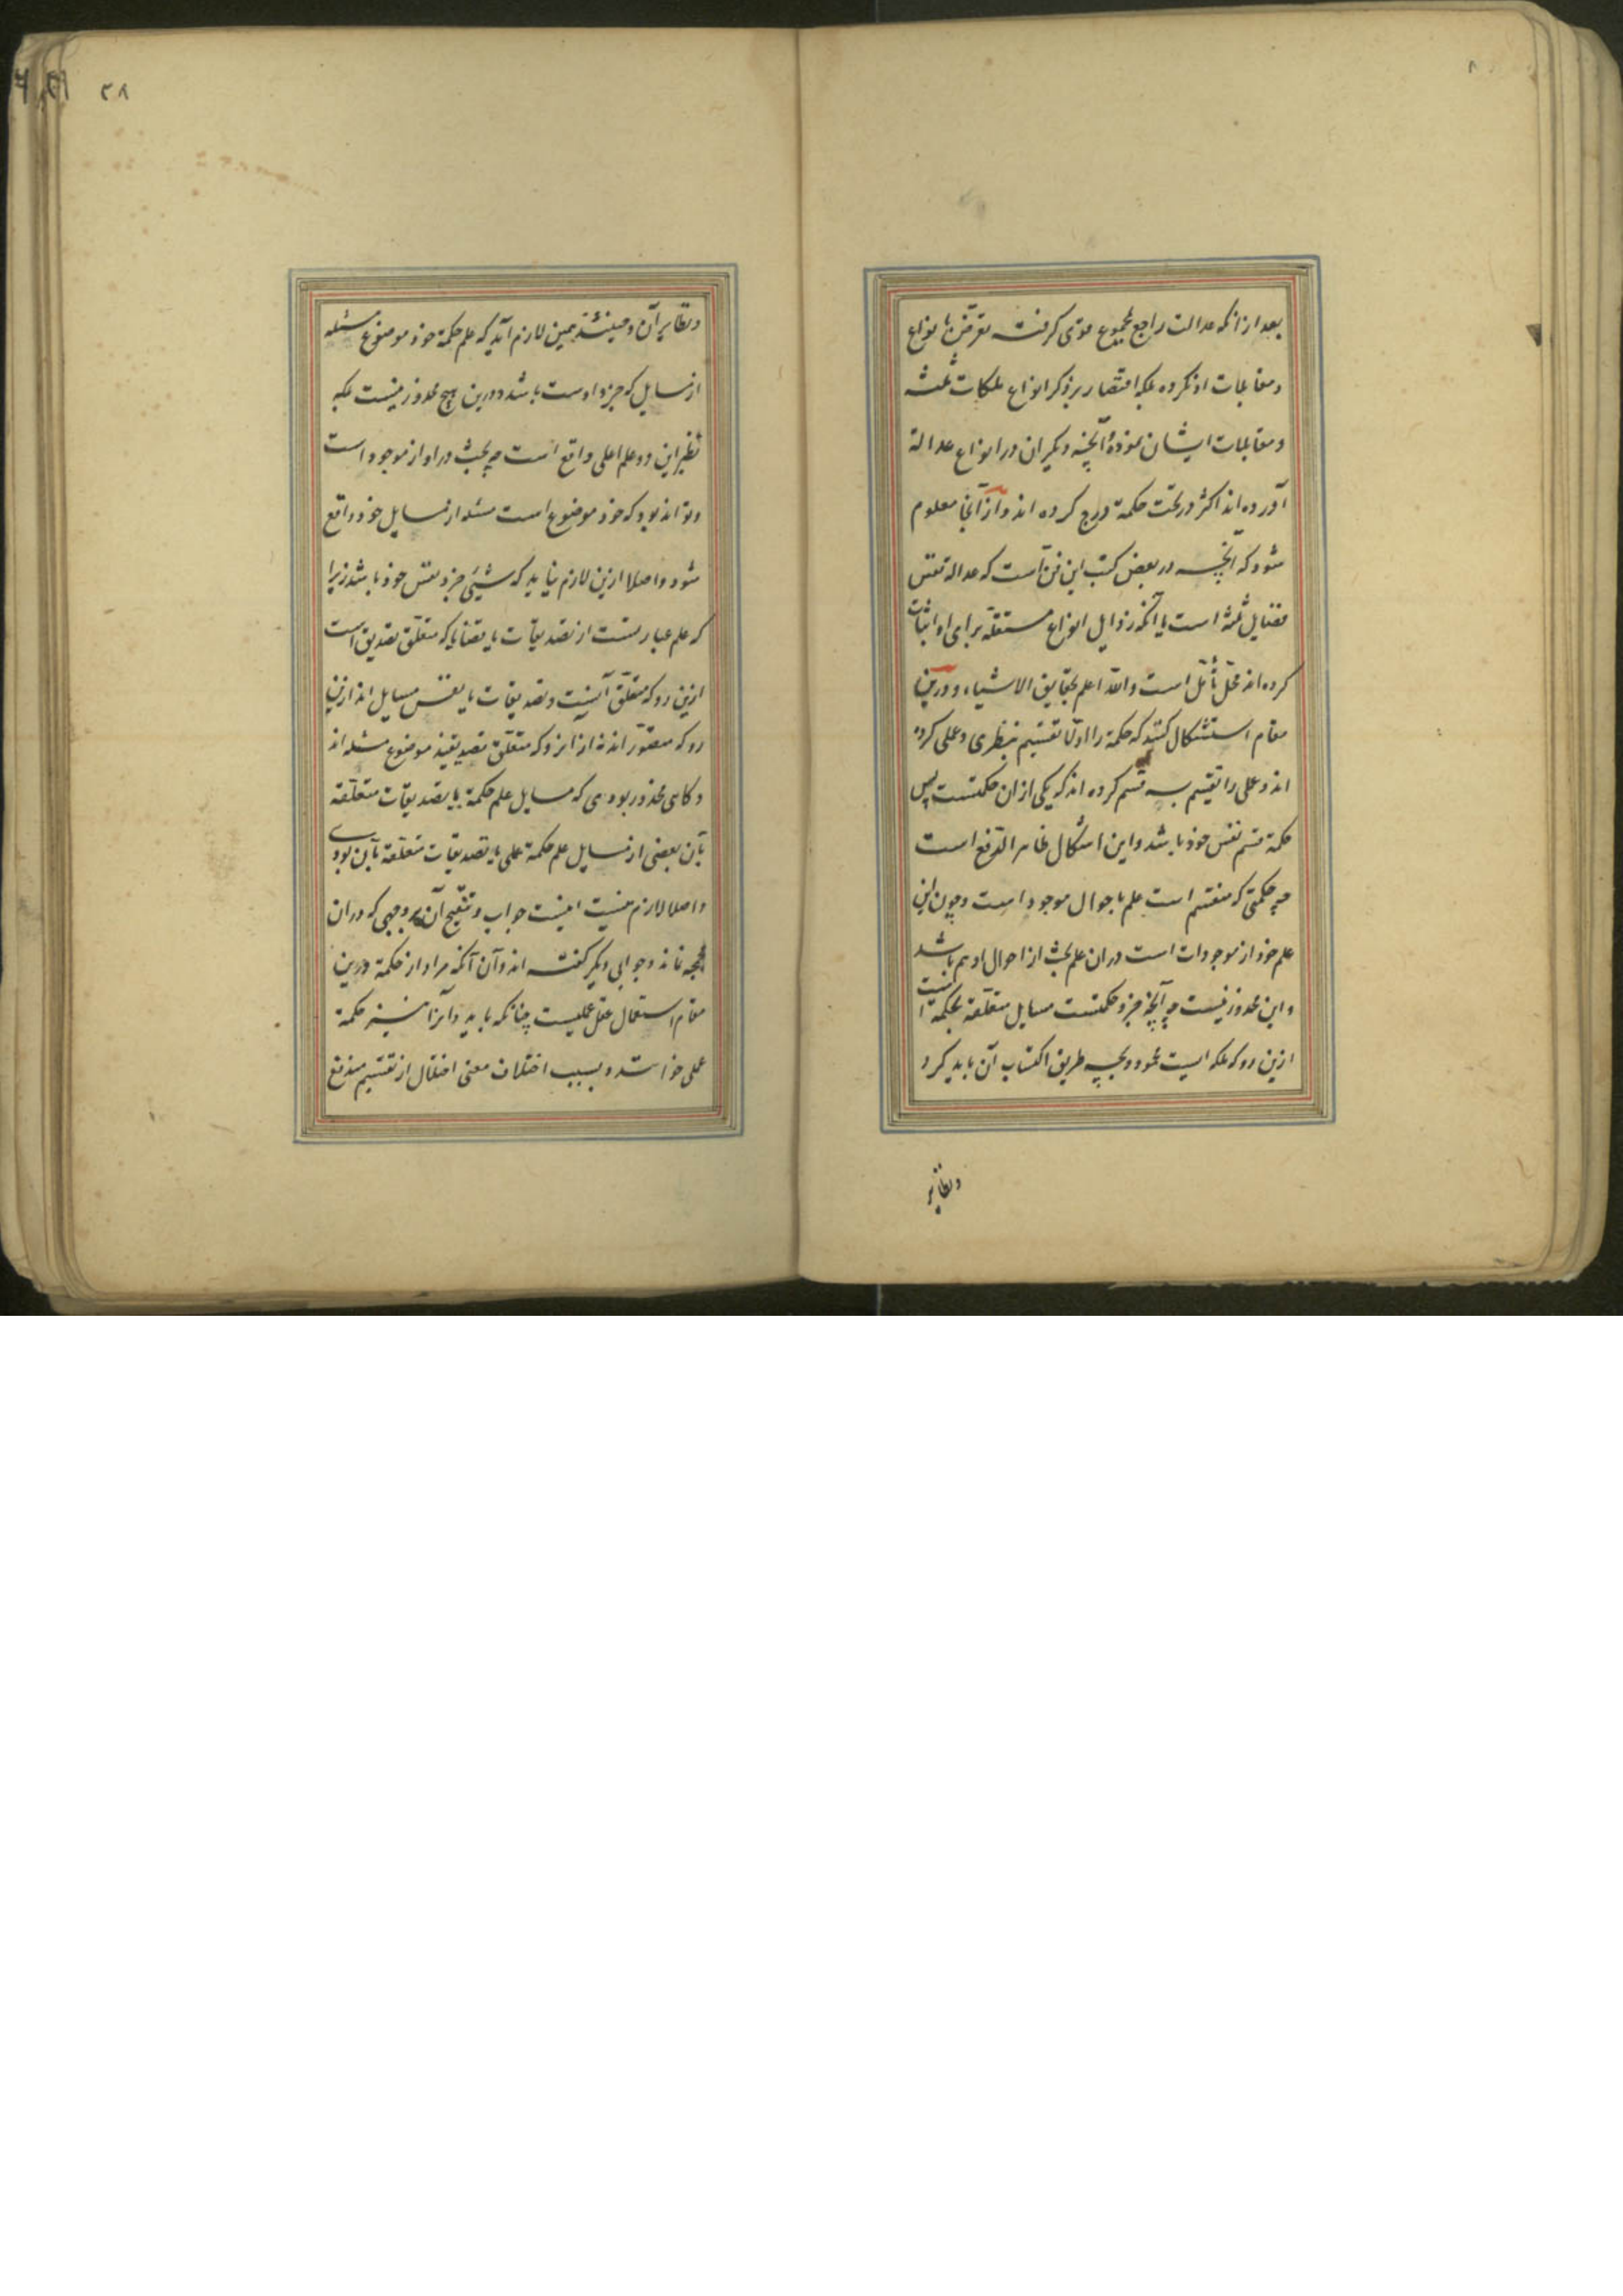 بعد از انکه عدالت راجع بمجموع قوی کرفته تعرّض بانواع
و مقابلات او نکرده بلکه اقتصار بر ذکر انواع ملکات ثلثه
و مقابلات ایشان نموده و آنچه دیکران در انواع عدالة
آورده اند اکثر در تحت حکمة درج کرده اند و از آنجا معلوم
شود که آنچه در بعض کتب این فن است که عدالة نفس
فضایل ثلثه است با آنکه رذایل انواع مستقلّه برای او اثبات
کرده اند محلّ تأمّل است والله اعلم بحقایق الاشیاء و درین
مقام استشکال کنند که حکمة را اولا تقسیم بنظری و عملی کرده
اند و عملی را تقسیم بسه قسم کرده اند که یکی از ان حکمتست پس
حکمة قسم نفس خود باشد و این اشکال ظاهر الدّفع است
چه حکمتی که منقسم است علم باحوال موجود است و چون این
علم خود از موجودات است در ان علم بحث از احوال او هم باشد
و این محذور نیست چه آنچه جزو حکمتست مسایل متعلّقه بحکمة است
ازین رو که ملکه ایست محمود و بچه طریق اکتساب آن باید کرد
و نظایر
۲۸
و نظایر آن و حینئذ همین لازم آید که علم حکمة خود موضوع مسئله
از مسایل که جزو اوست باشد و درین هیچ محذور نیست بلکه
نظیر این در علم اعلی واقع است چه بحث در او از موجود است
و تواند بود که خود موضوع است مسئله از مسایل خود واقع
شود و اصلا ازین لازم نیاید که شیئی جزو نفس خود باشد زیرا
که علم عبارتست از تصدیقات یا قضایا که متعلّق تصدیق است
ازین رو که متعلّق آنست و تصدیقات یا نفس مسایل اند ازین
رو که متصوّر اند نه از انرو که متعلّق تصدیقند موضوع مسئله اند
و کاهی محذور بودی که مسایل علم حکمة یا تصدیقات متعلّقه
بآن بعضی از مسایل علم حکمة عملی یا تصدیقات متعلّقه بآن بودی
و اصلا لازم نیست اینست جواب و تنقیح آن بر وجهی که در ان
نماند و جوابی دیکر کفته اند و آن آنکه مراد از حکمة درین
مقام استعمال عقل عملیست چنانکه باید و آنرا نیز حکمة
عملی خوانند و بسبب اختلاف معنی اختلال از تقسیم مندفع